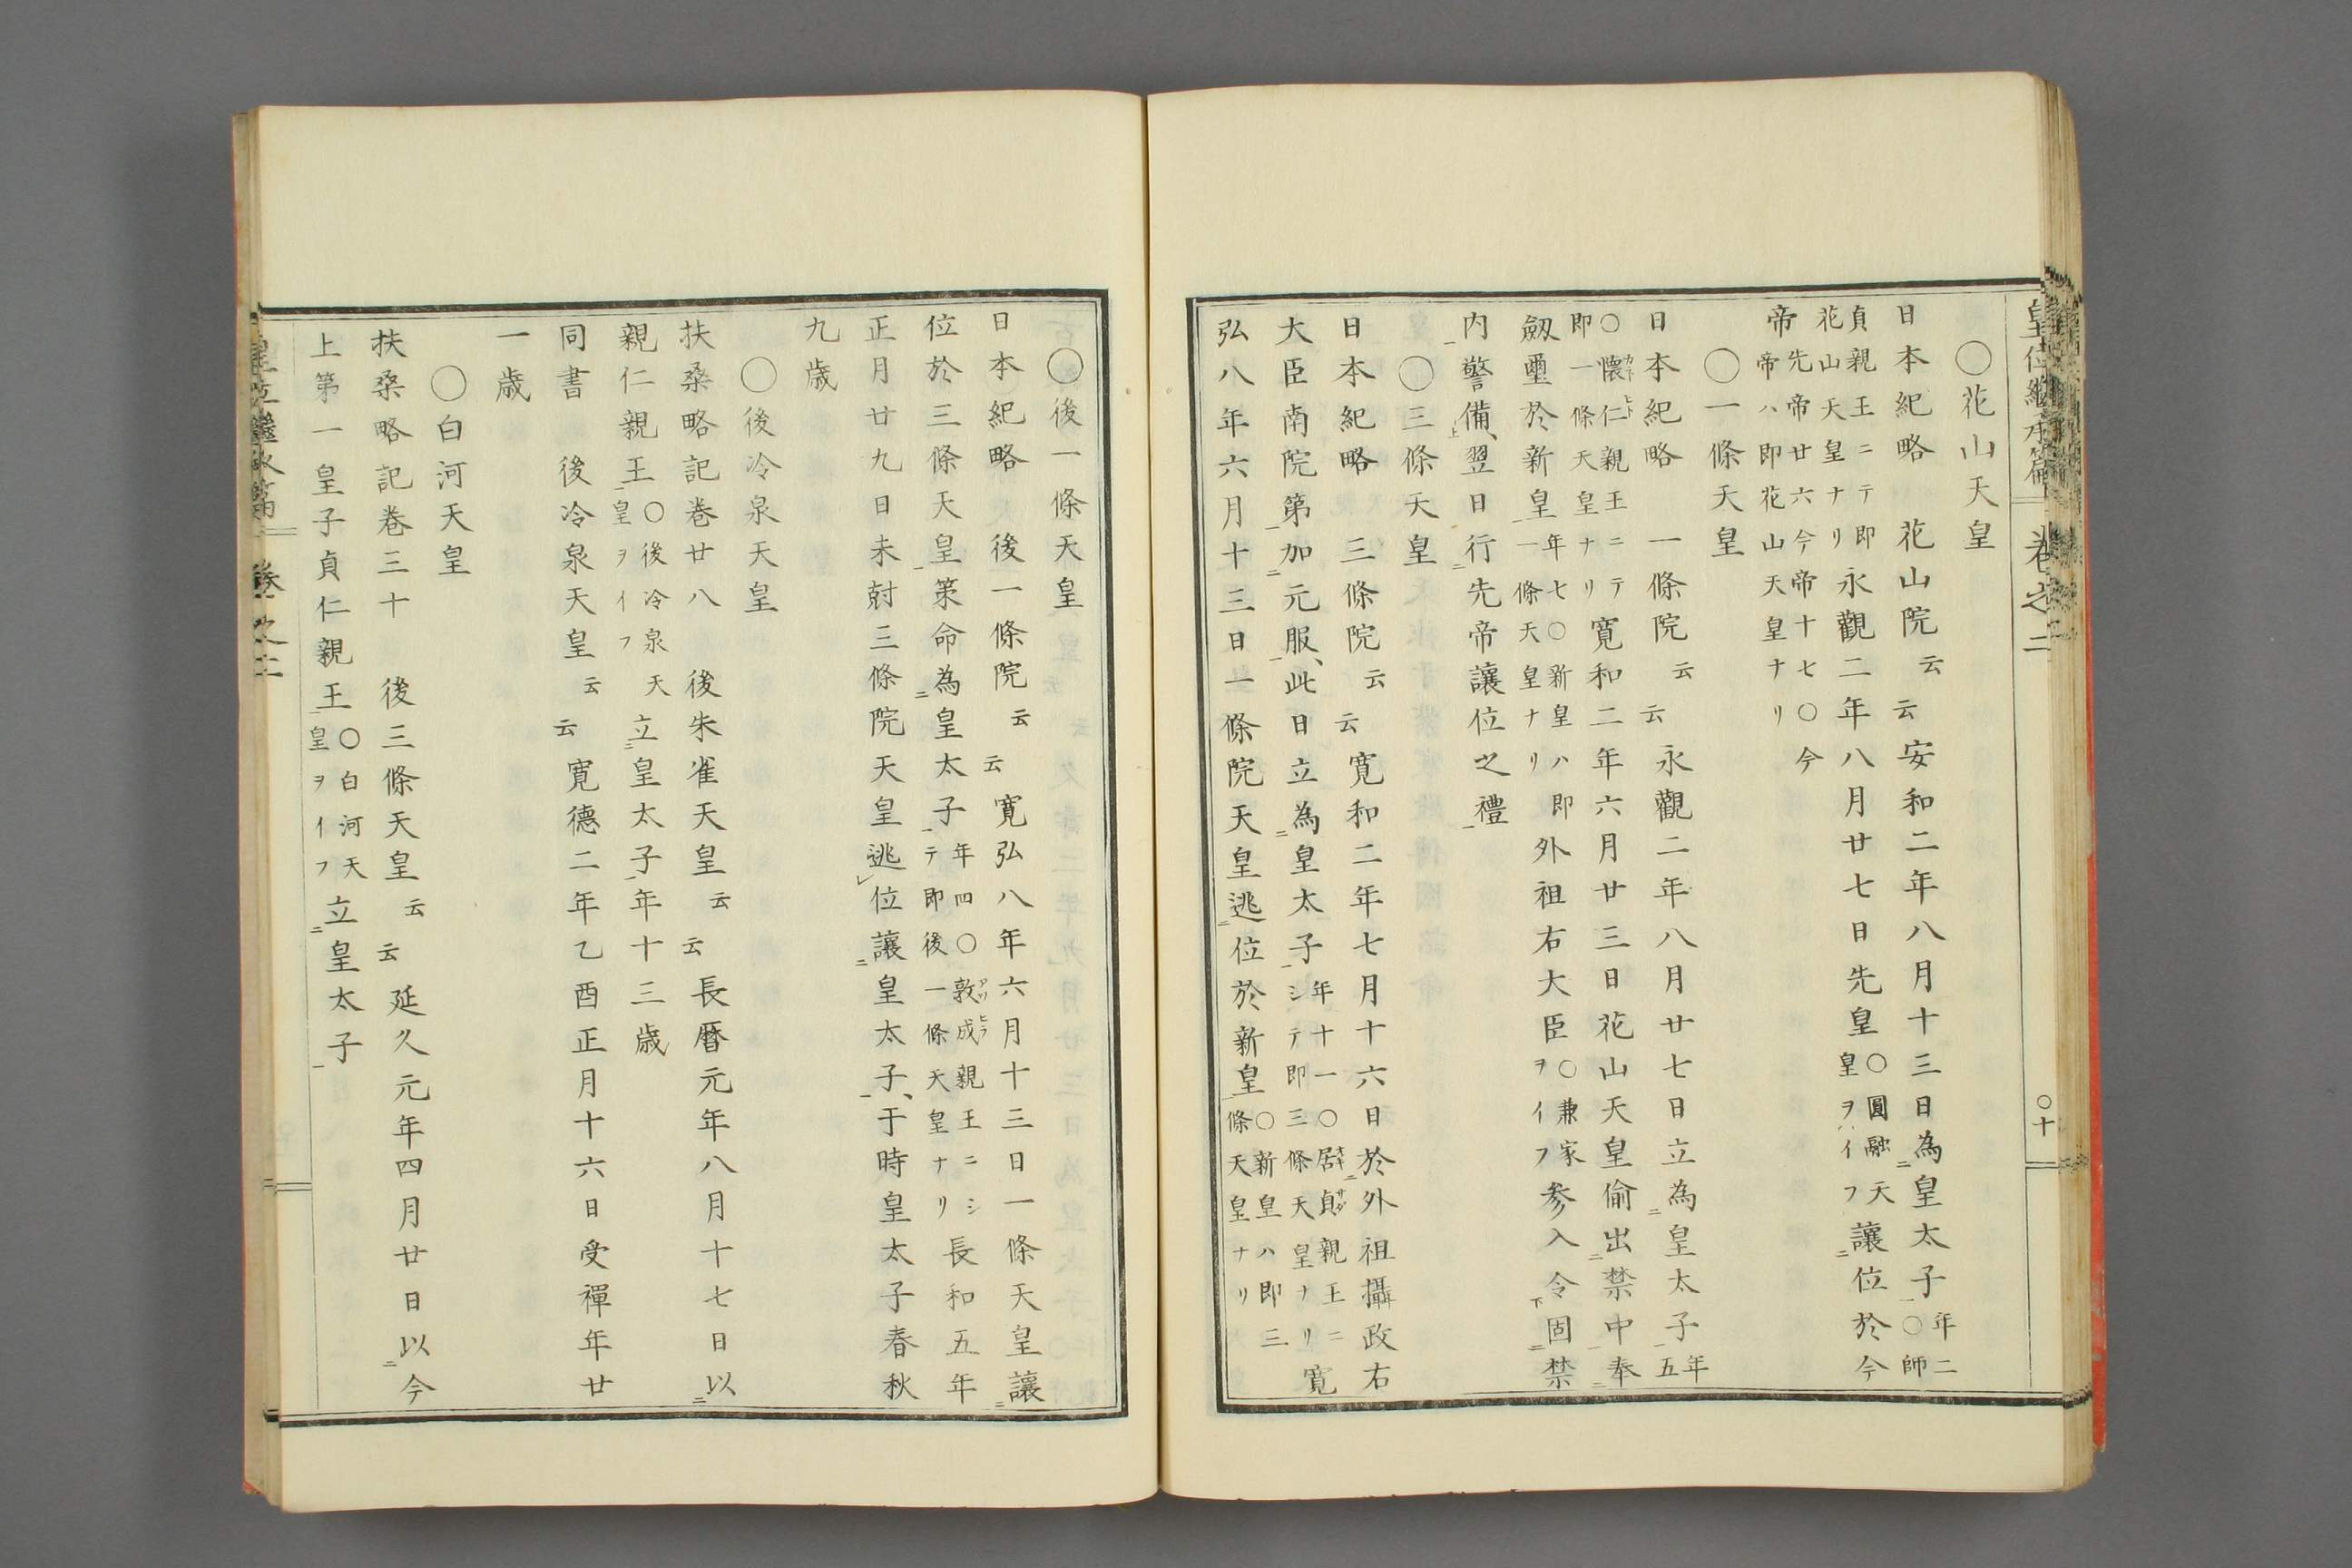 皇位繼承篇 卷之二 〇十
〇花山天皇
日本紀略 花山院云云安和二年八月十三日為皇太子年二〇師
貞親王ニテ即花山天皇ナリ永觀二年八月廿七日先皇〇圓融天皇ヲイフ讓位於今
帝先帝廿六今帝十七〇今帝ハ即花山天皇ナリ
〇一條天皇
日本紀略 一條院云云永觀二年八月廿七日立為皇太子年五
〇懷仁親王ニテ即一條天皇ナリ寬和二年六月廿三日花山天皇偷出禁中奉
劔璽於新皇年七〇新皇ハ即一條天皇ナリ外祖右大臣〇兼家ヲイフ參入令固禁
内警備、翌日行先帝讓位之禮
〇三條天皇
日本紀略 三條院云云寬和二年七月十六日於外祖攝政右
大臣南院第加元服、此日立為皇太子年十一〇居貞親王ニシテ即三條天皇ナリ寬
弘八年六月十三日一條院天皇逃位於新皇〇新皇ハ即三條天皇ナリ
〇後一條天皇
日本紀略 後一條院云云寬弘八年六月十三日一條天皇讓
位於三條天皇策命為皇太子年四〇敦成親王ニシテ即後一條天皇ナリ長和五年
正月廿九日未尅三條院天皇逃位讓皇太子、于時皇太子春秋
九歳
〇後冷泉天皇
扶桑略記卷廿八 後朱雀天皇云云長曆元年八月十七日以
親仁親王〇後冷泉天皇ヲイフ立皇太子年十三歳
同書 後冷泉天皇云云寬德二年乙酉正月十六日受禪年廿
一歳
〇白河天皇
扶桑略記卷三十 後三條天皇云云延久元年四月廿日以今
上第一皇子貞仁親王〇白河天皇ヲイフ立皇太子
皇位繼承篇 卷之二